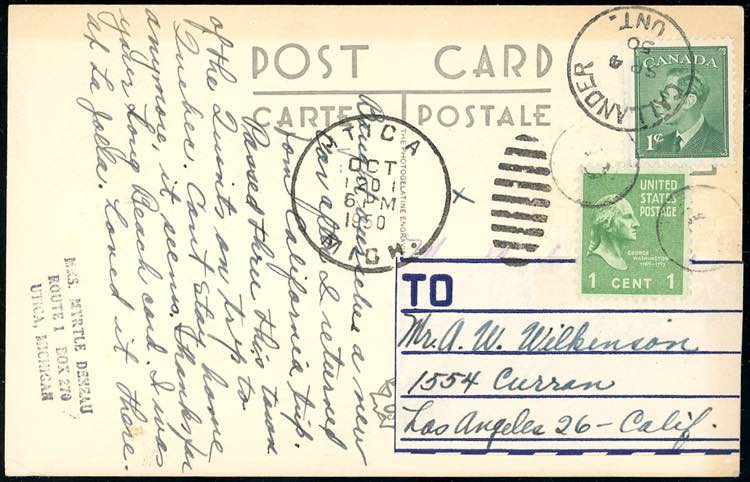 POST CARD
CARTE POSTALE
THE PHOTOGELATINE ENGRAV
CALLANDER
SP 4
50
ONT.
CANADA
1¢
UTICA
OCT
1950
MICH.
UNITED
STATES
POSTAGE
GEORGE
WASHINGTON
1789-1797
1 CENT 1
a new
car after I returned
from California trip.
Passed thru this town
of the Quints on trip to
Quebec. Cant stay home
anymore it seems. Thanks for
your Long Beach card. I was
at La Jolla. Loved it there.
MRS. MYRTLE DENEAU
ROUTE 1 BOX 279
UTICA, MICHIGAN
TO
Mr. A. W. Wilkenson
1554 Curran
Los Angeles 26 - Calif.